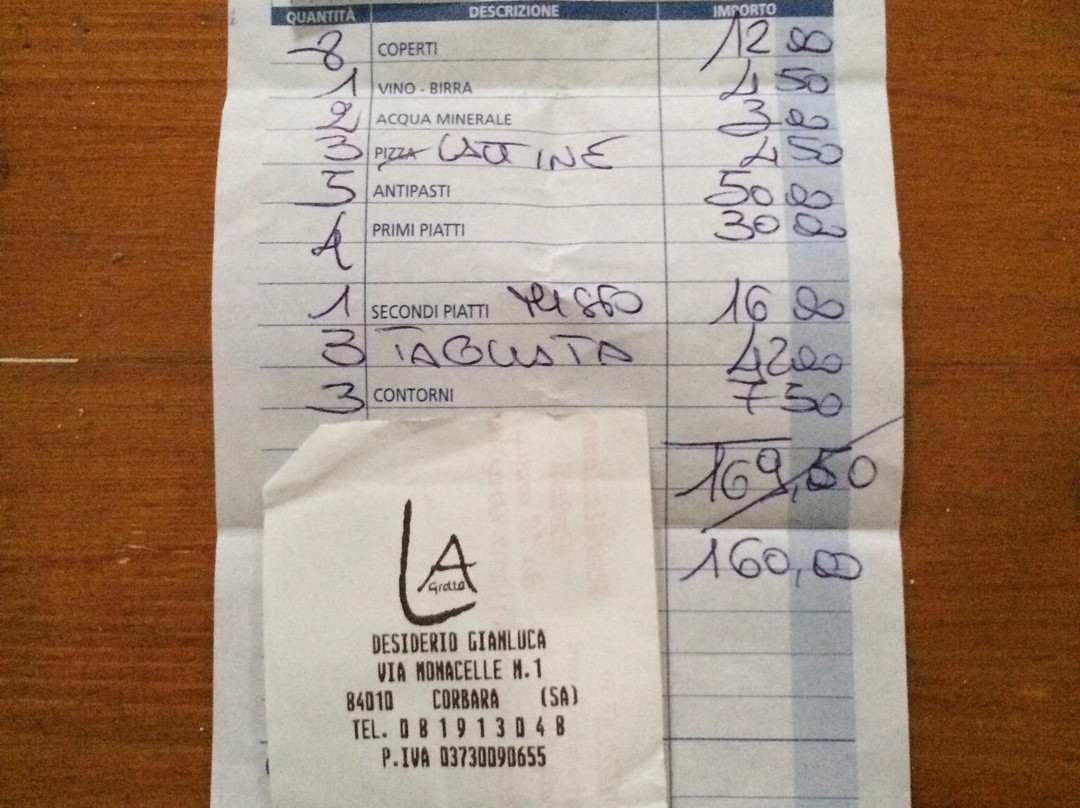 QUANTITÀ DESCRIZIONE IMPORTO
8 COPERTI 12 00
1 VINO - BIRRA 4 50
2 ACQUA MINERALE 3 00
3 PIZZA LATTINE 4 50
5 ANTIPASTI 50 00
4 PRIMI PIATTI 30 00
1 SECONDI PIATTI MISTO 16 00
3 TAGLIATA 42 00
3 CONTORNI 7 50
169,50
160,00
LA Grotta
DESIDERIO GIANLUCA
VIA MONACELLE N.1
84010 CORBARA (SA)
TEL. 0 8 1 9 1 3 0 4 8
P.IVA 03730090655